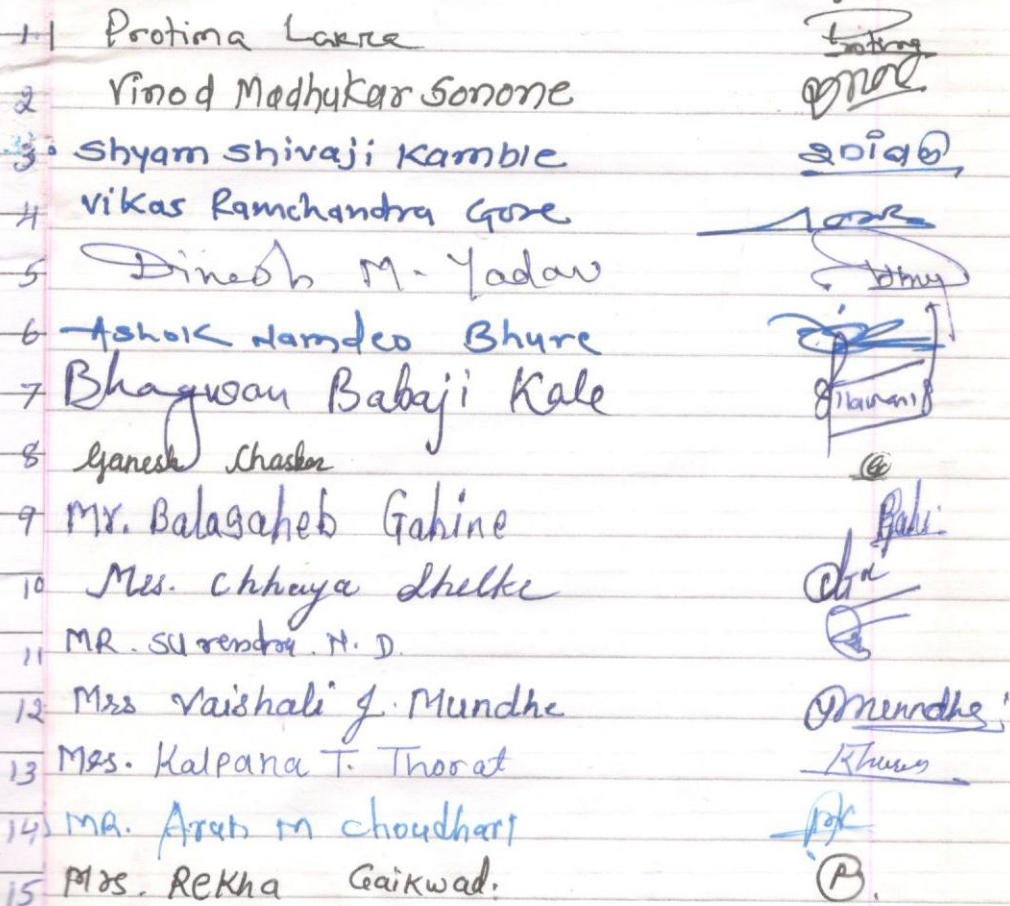 1 Protima Lakra Protima
2 Vinod Madhukar Sonone
3 Shyam Shivaji Kamble
4 Vikas Ramchandra Gore
5 Dinesh M. Yadav
6 Ashok Namdeo Bhure
7 Bhagwan Babaji Kale
8 Ganesh Chasker
9 Mr. Balasaheb Gahine
10 Mrs. Chhaya Shelke
11 MR. Surendra. N. D.
12 Mrs Vaishali J. Mundhe Mundhe
13 Mrs. Kalpana T. Thorat
14) MR. Arun M Choudhari
15 Mrs. Rekha Gaikwad.